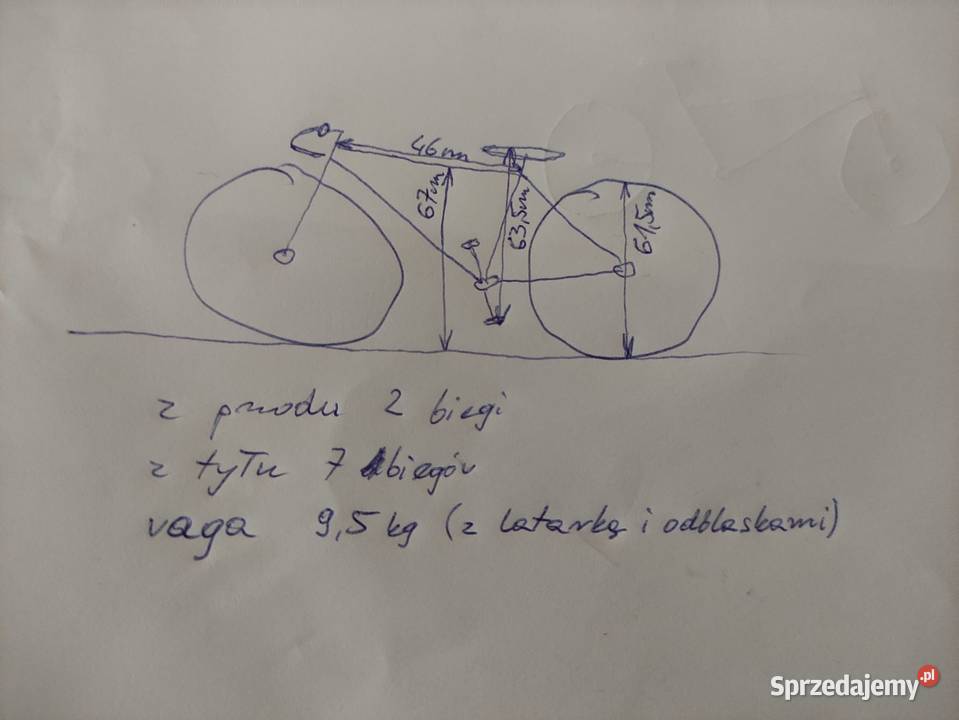 46cm
67cm
63,5cm
61,5cm
z przodu 2 biegi
z tyłu 7 biegów
waga 9,5 kg (z latarką i odblaskami)
Sprzedajemy.pl